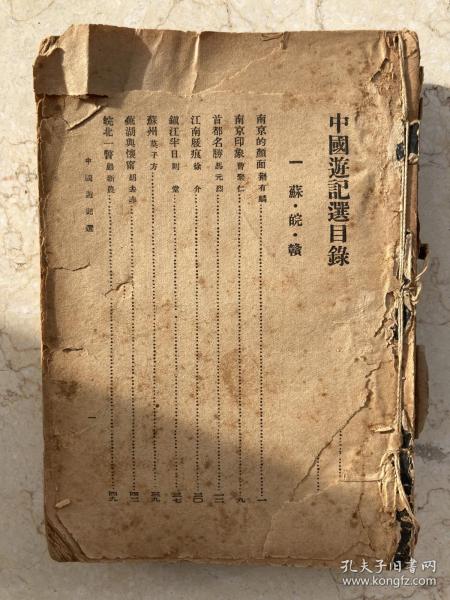 中國遊記選目錄
一 蘇·皖·贛
南京的顏面 荆有麟 一
南京印象 曹聚仁 九
首都名勝 馬元烈 一二
江南屐痕 徐介 二〇
鎮江半日 則堂 三七
蘇州 英子方 三九
蕪湖與懷甯 胡去非 四二
皖北一瞥 蔡新農 四九
中國遊記選 一
孔夫子旧书网
www.kongfz.com